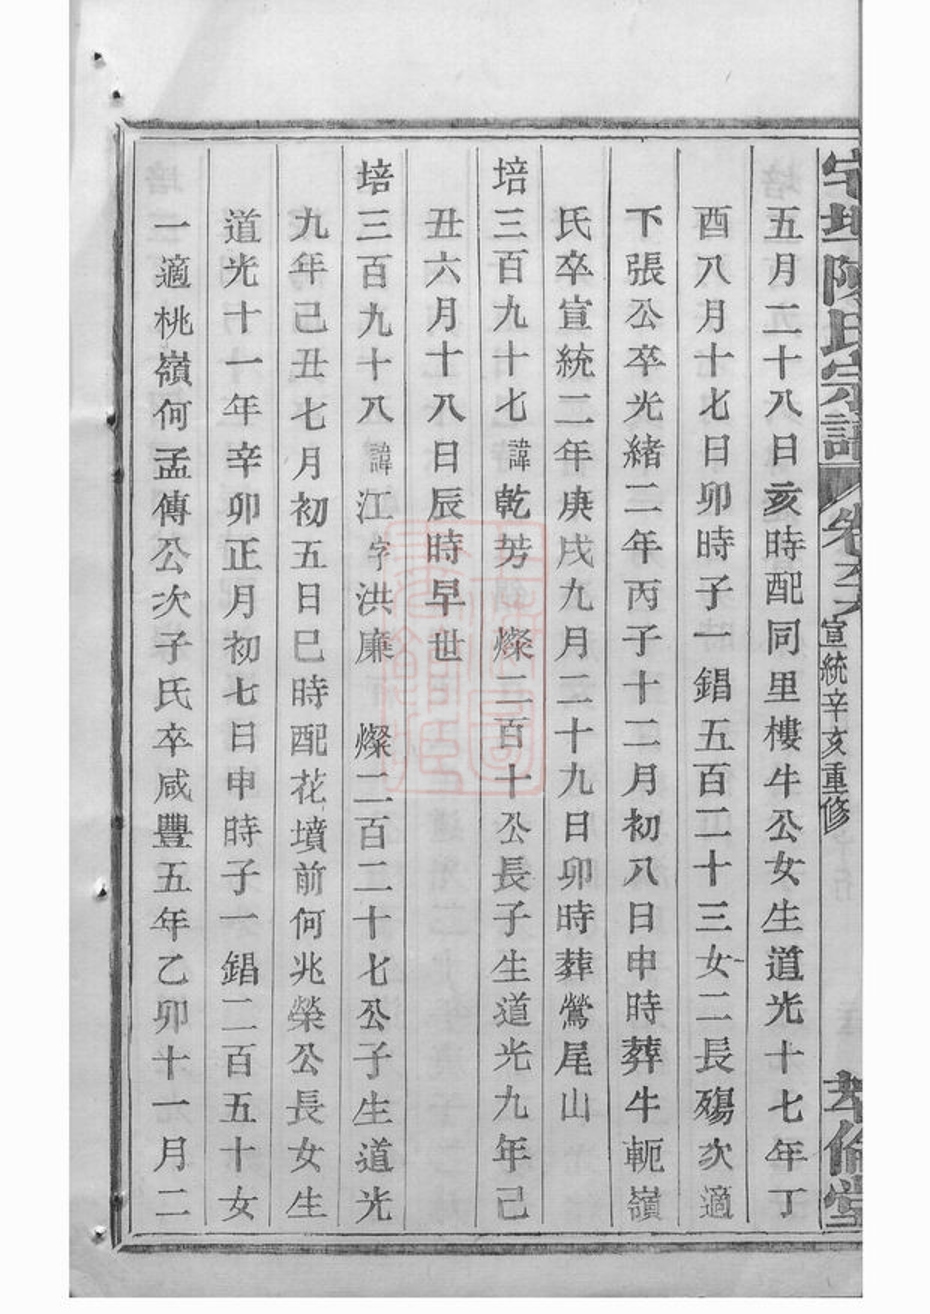 陳氏宗譜
宣統辛亥重修
倫堂
五月二十八日亥時配同里樓牛公女生道光十七年丁
酉八月十七日卯時子一錩五百二十三女二長殤次適
下張公卒光緒二年丙子十二月初八日申時葬牛軛嶺
氏卒宣統二年庚戌九月二十九日卯時葬鶯尾山
培三百九十七諱乾芳燦二百十公長子生道光九年己
丑六月十八日辰時早世
培三百九十八諱江字洪廉 燦二百二十七公子生道光
九年己丑七月初五日巳時配花墳前何兆榮公長女生
道光十一年辛卯正月初七日申時子一錩二百五十女
一適桃嶺何孟傳公次子氏卒咸豐五年乙卯十一月二